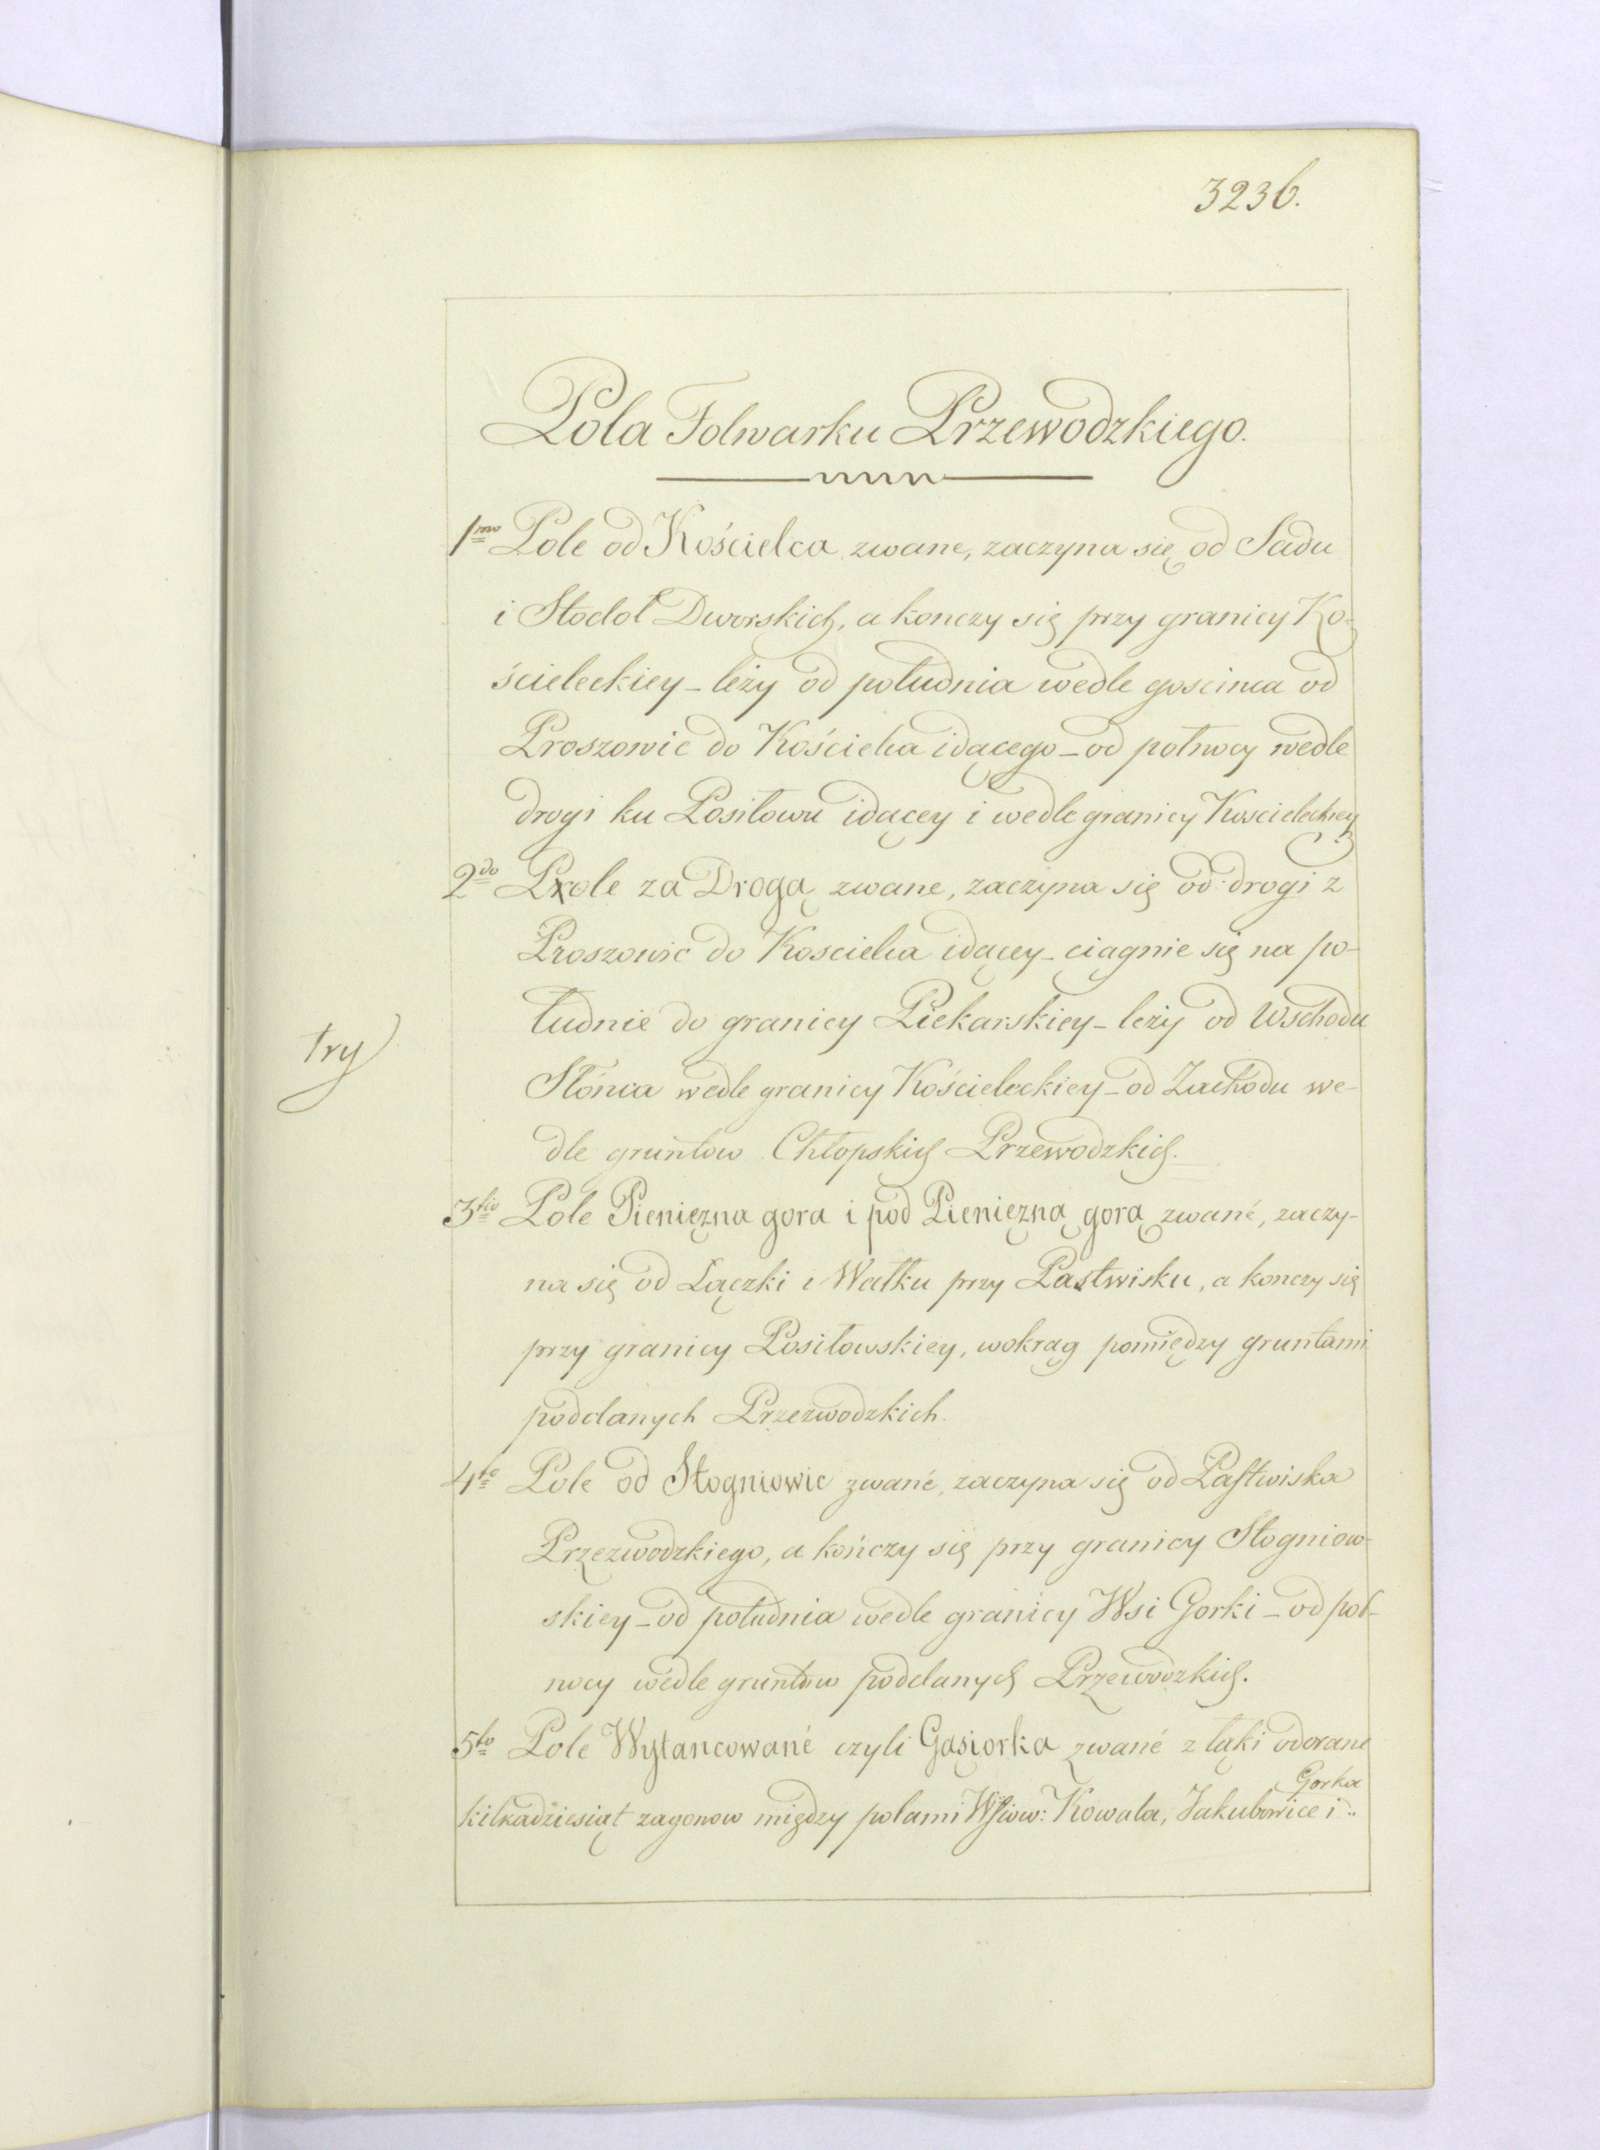 3236.
Pola Folwarku Przewodzkiego.
1mo Pole od Kościelca zwane, zaczyna się od Sadu
i Stodoł Dworskich, a konczy się przy granicy Ko-
ścieleckiey – leży od południa wedle goscinca od
Proszowic do Kościelca idącego – od połnocy wedle
drogi ku Posiłowu idącey i wedle granicy Koscieleckiey
2do Pole za Drogą zwane, zaczyna się od drogi z
Proszowic do Koscielca idącey – ciągnie się na po-
łudnie do granicy Piekarskiey – leży od Wschodu
try
Słónca wedle granicy Kościeleckiey – od Zachodu we-
dle gruntow Chłopskich Przewodzkich.
3tio Pole Pieniężna gora i pod Pieniężną gorą zwané, zaczy-
na się od Łączki i Wałku przy Pastwisku, a konczy się
przy granicy Posiłowskiey, wokrąg pomiędzy gruntami
poddanych Przezwodzkich.
4to Pole od Stogniowic zwané, zaczyna się od Pastwiska
Przezwodzkiego, a kończy się przy granicy Stogniow-
skiey – od południa wedle granicy Wsi Gorki – od poł-
nocy wedle gruntow poddanych Przewodzkich.
5to Pole Wytancowané czyli Gąsiorka zwané z łąki odorane
kilkadziesiąt zagonow między polami Wsiow: Kowala, Jakubowice i Gorka